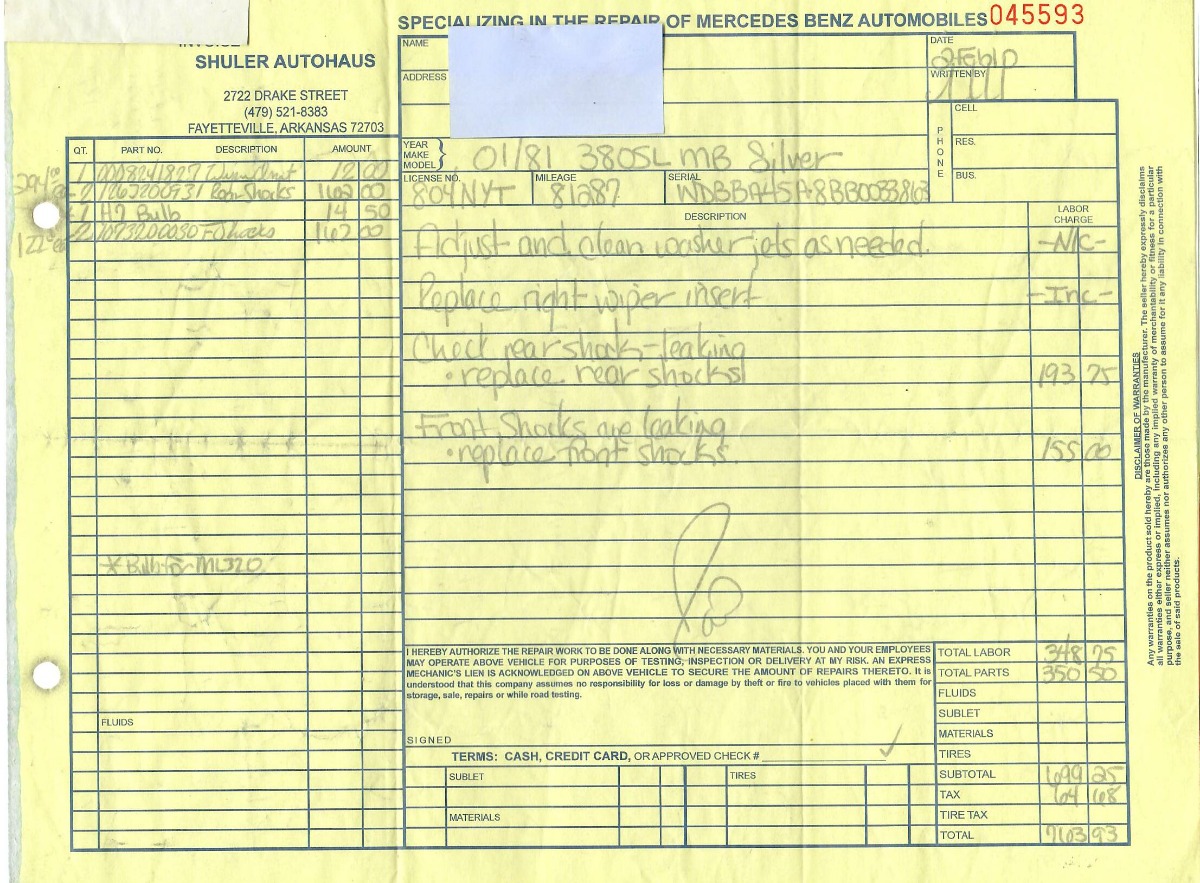 SPECIALIZING IN THE REPAIR OF MERCEDES BENZ AUTOMOBILES 045593
INVOICE
SHULER AUTOHAUS
2722 DRAKE STREET
(479) 521-8383
FAYETTEVILLE, ARKANSAS 72703
NAME
ADDRESS
DATE
2Feb10
WRITTEN BY
PHONE
CELL
RES.
BUS.
YEAR
MAKE
MODEL
01/81 380SL MB Silver
LICENSE NO. MILEAGE SERIAL
804NYT 81287 WDBBA45A8BB003386
QT. PART NO. DESCRIPTION AMOUNT
1 0008241827 12 00
2 1263200931 Rear Shocks 162 00
1 H7 Bulb 14 50
2 1073200030 F Shocks 162 00
122.00
*Bulb for ML320
FLUIDS
DESCRIPTION LABOR CHARGE
Adjust and clean washer jets as needed. -N/C-
Replace right wiper insert -Inc-
Check rear shocks-leaking
•replace rear shocks 193 75
Front Shocks are leaking
•replace front shocks 155 00
I HEREBY AUTHORIZE THE REPAIR WORK TO BE DONE ALONG WITH NECESSARY MATERIALS. YOU AND YOUR EMPLOYEES
MAY OPERATE ABOVE VEHICLE FOR PURPOSES OF TESTING, INSPECTION OR DELIVERY AT MY RISK. AN EXPRESS
MECHANIC'S LIEN IS ACKNOWLEDGED ON ABOVE VEHICLE TO SECURE THE AMOUNT OF REPAIRS THERETO. It is
understood that this company assumes no responsibility for loss or damage by theft or fire to vehicles placed with them for
storage, sale, repairs or while road testing.
SIGNED
TERMS: CASH, CREDIT CARD, OR APPROVED CHECK #
SUBLET TIRES
MATERIALS
TOTAL LABOR 348 75
TOTAL PARTS 350 50
FLUIDS
SUBLET
MATERIALS
TIRES
SUBTOTAL 699 25
TAX 64 68
TIRE TAX
TOTAL 763 93
DISCLAIMER OF WARRANTIES
Any warranties on the product sold hereby are those made by the manufacturer. The seller hereby expressly disclaims
all warranties either express or implied, including any implied warranty of merchantability or fitness for a particular
purpose, and seller neither assumes nor authorizes any other person to assume for it any liability in connection with
the sale of said products.